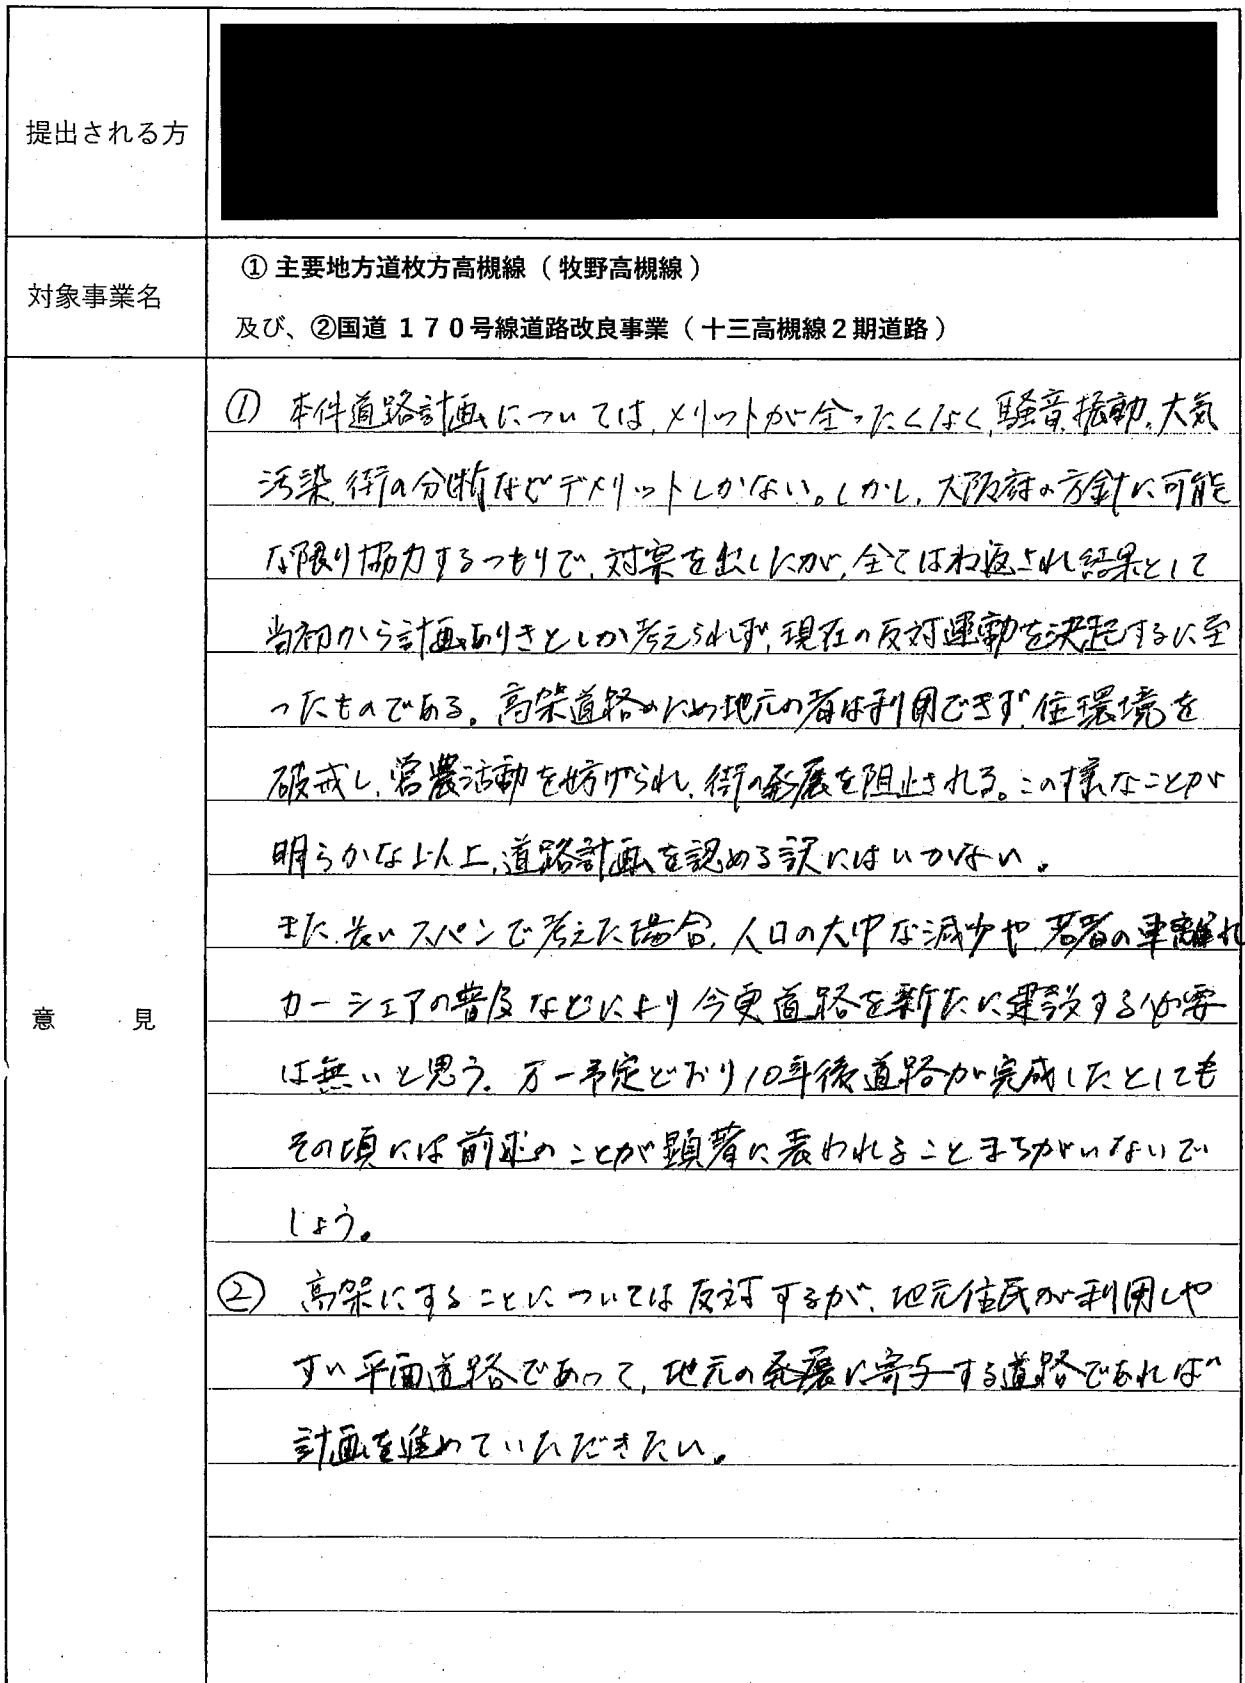 提出される方
対象事業名
①主要地方道枚方高槻線（牧野高槻線）
及び、②国道１７０号線道路改良事業（十三高槻線２期道路）
意　見
① 本件道路計画については、メリットが全ったくなく、騒音、振動、大気
汚染、街の分断などデメリットしかない。しかし、大阪府の方針に可能
な限り協力するつもりで、対案を出したが、全てはね返され結果として
当初から計画ありきとしか考えられず、現在の反対運動を決起するに至
ったものである。高架道路のため地元の者は利用できず、住環境を
破戒し、営農活動を妨げられ、街の発展を阻止される。この様なことが
明らかな以上、道路計画を認める訳にはいかない。
また、長いスパンで考えた場合、人口の大巾な減少や、若者の車離れ
カーシェアの普及などにより今更道路を新たに建設する必要
は無いと思う。万一予定どおり10年後道路が完成したとしても
その頃には前述のことが顕著に表われることまちがいないで
しょう。
② 高架にすることについては反対するが、地元住民が利用しや
すい平面道路であって、地元の発展に寄与する道路であれば
計画を進めていただきたい。